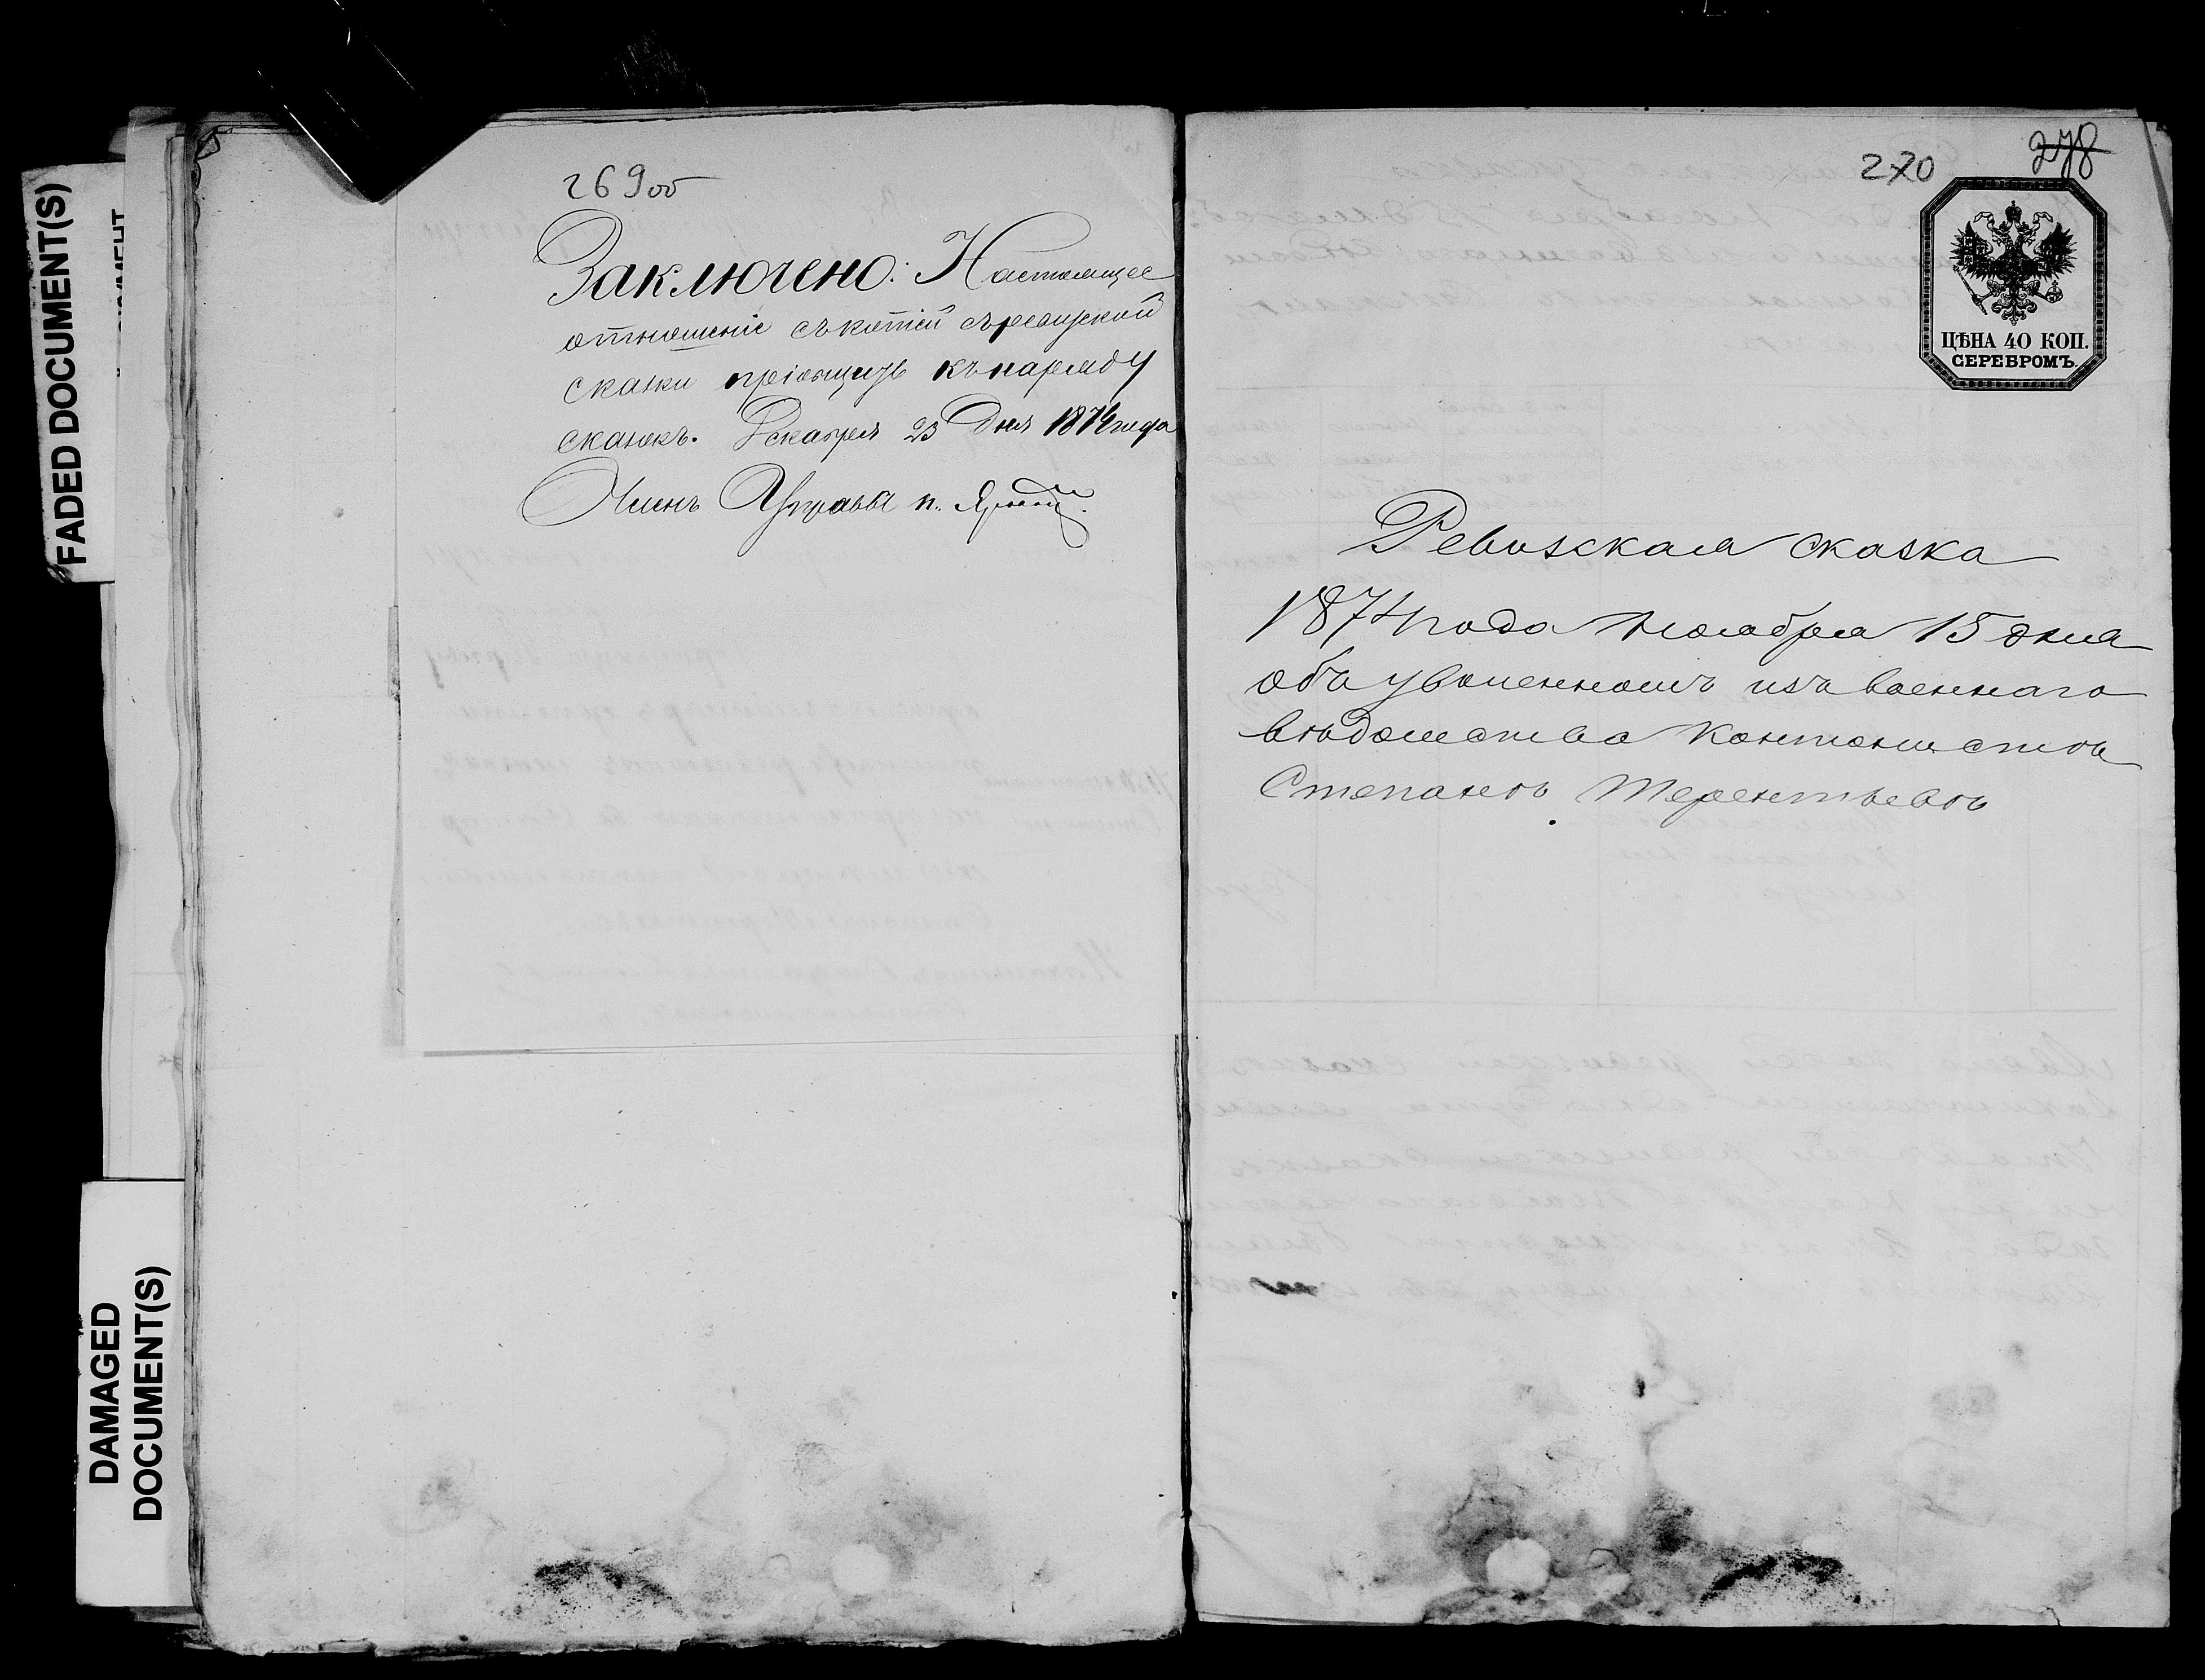 FADED DOCUMENT(S)
DAMAGED
DOCUMENT(S)
269об
Заключено: Настоящее
отношеніе съ копіей съ ревизской
сказки пріобщить къ наряду
сказокъ. Декабря 23 дня 1874 года
Членъ Управы
270
278
ЦѢНА 40 КОП.
СЕРЕБРОМЪ.
Ревизская сказка
1874 года Ноября 15 дня
объ уволенномъ изъ военнаго
вѣдомства кантонистѣ
Степанѣ Терентьевѣ